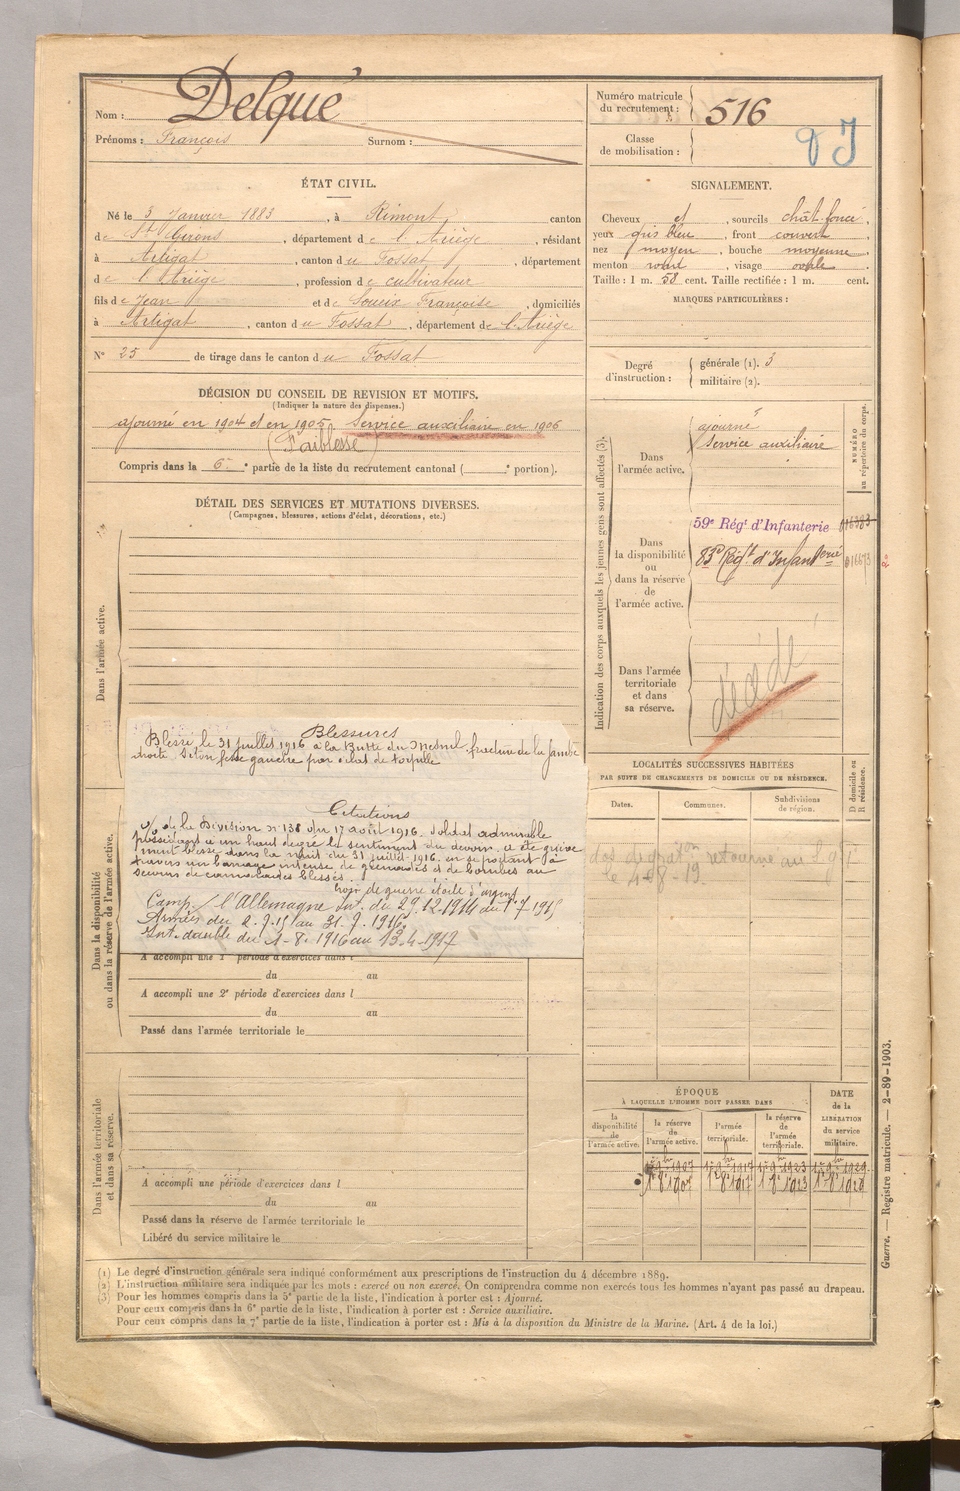 Nom : Delqué
Prénoms : François Surnom :
Numéro matricule du recrutement : 516
Classe de mobilisation :
ÉTAT CIVIL.
Né le 3 Janvier 1883, à Rimont, canton
de St Girons, département de l'Ariège, résidant
à Artigat, canton du Fossat, département
de l'Ariège, profession de cultivateur
fils de Jean et de Soueix Françoise, domiciliés
à Artigat, canton du Fossat, département de l'Ariège
N° 25 de tirage dans le canton du Fossat
SIGNALEMENT.
Cheveux et, sourcils chât. foncé,
yeux gris bleu, front couvert,
nez moyen, bouche moyenne,
menton rond, visage ovale.
Taille : 1 m. 58 cent. Taille rectifiée : 1 m. cent.
MARQUES PARTICULIÈRES :
Degré d'instruction : générale (1). 3
militaire (2).
DÉCISION DU CONSEIL DE REVISION ET MOTIFS.
(Indiquer la nature des dispenses.)
ajourné en 1904 et en 1905 Service auxiliaire en 1906
(Faiblesse)
Compris dans la 6e partie de la liste du recrutement cantonal ( e portion).
DÉTAIL DES SERVICES ET MUTATIONS DIVERSES.
(Campagnes, blessures, actions d'éclat, décorations, etc.)
Dans l'armée active.
Blessures
Blessé le 31 juillet 1916 à la Butte du Mesnil fracture de la jambe
droite Séton fesse gauche par éclat de torpille
Citations
O/ de la Division n° 138 du 17 août 1916. Soldat admirable
possédant à un haut degré le sentiment du devoir, a été griève
ment blessé dans la nuit du 31 juillet 1916 en se portant à
travers un barrage intense de grenades et de bombes au
secours de camarades blessés.
Croix de guerre étoile d'argent
Camp. c/ l'Allemagne Int. du 29.12.1914 au 1.7.1915
Armées du 2.7.15 au 31.7.1916.
Int. double du 1-8-1916 au 13.4-1917
Dans la disponibilité ou dans la réserve de l'armée active.
A accompli une 1re période d'exercices dans l
du au
A accompli une 2e période d'exercices dans l
du au
Passé dans l'armée territoriale le
Dans l'armée territoriale et dans sa réserve.
A accompli une période d'exercices dans l
du au
Passé dans la réserve de l'armée territoriale le
Libéré du service militaire le
Indication des corps auxquels les jeunes gens sont affectés (3).
NUMÉRO au répertoire du corps.
Dans l'armée active.
ajourné
Service auxiliaire
Dans la disponibilité ou dans la réserve de l'armée active.
59e Régt d'Infanterie 016383
83e Régt d'Infanterie 016673
Dans l'armée territoriale et dans sa réserve.
décédé
LOCALITÉS SUCCESSIVES HABITÉES
PAR SUITE DE CHANGEMENTS DE DOMICILE OU DE RÉSIDENCE.
Dates. Communes. Subdivisions de région. D domicile ou R résidence.
retourné au
le 4-8-19.
ÉPOQUE
À LAQUELLE L'HOMME DOIT PASSER DANS
la disponibilité de l'armée active. la réserve de l'armée active. l'armée territoriale. la réserve de l'armée territoriale. DATE de la LIBÉRATION du service militaire.
1er 9bre 1907 1er 9bre 1917 1er 9bre 1923 1er 9bre 1929
Guerre. — Registre matricule. — 2-89-1903.
(1) Le degré d'instruction générale sera indiqué conformément aux prescriptions de l'instruction du 4 décembre 1889.
(2) L'instruction militaire sera indiquée par les mots : exercé ou non exercé. On comprendra comme non exercés tous les hommes n'ayant pas passé au drapeau.
(3) Pour les hommes compris dans la 5e partie de la liste, l'indication à porter est : Ajourné.
Pour ceux compris dans la 6e partie de la liste, l'indication à porter est : Service auxiliaire.
Pour ceux compris dans la 7e partie de la liste, l'indication à porter est : Mis à la disposition du Ministre de la Marine. (Art. 4 de la loi.)